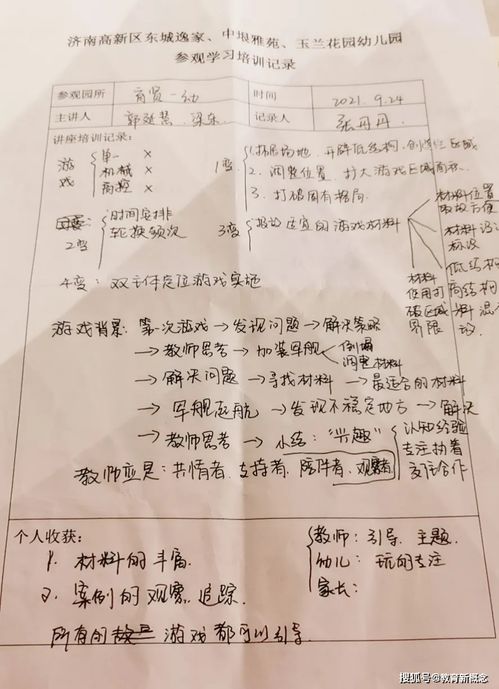 济南高新区东城逸家、中垠雅苑、玉兰花园幼儿园
参观学习培训记录
参观园所 育贤一幼 时间 2021.9.24
主讲人 郭延芸、梁东 记录人 张丹丹
讲座培训记录:
游戏 { 单一 ×
机械 ×
高控 ×
1变 { 1.拓展场地、升降低结构,创造性区域
2.调整位置、扩大游戏区域面积
3.打破固有格局.
2变 { 时间安排
轮换频次
3变 { 投放适宜的游戏材料
材料位置
取放方便
材料设计
标识
低结构
高结构
材料混合
放.
材料使用打破区域界限
4变: 双主体定位游戏实施
游戏背景: 第一次游戏 → 发现问题 → 解决策略
→ 教师思考 → 加装军舰 < 倒塌
调整材料
→ 解决问题 → 寻找材料 → 最适合的材料
→ 军舰起航 → 发现不稳定地方 → 解决
→ 教师思考 → 小结:“兴趣” { 认知经验
专注执着
友信合作
教师应是: 共情者、支持者、陪伴者、观察者
个人收获:
1. 材料的丰富.
2. 案例的观察、追踪.
所有的 游戏都可以引导.
{ 教师: 引导、主题.
幼儿: 玩的专注
家长:
搜狐号@教育新概念